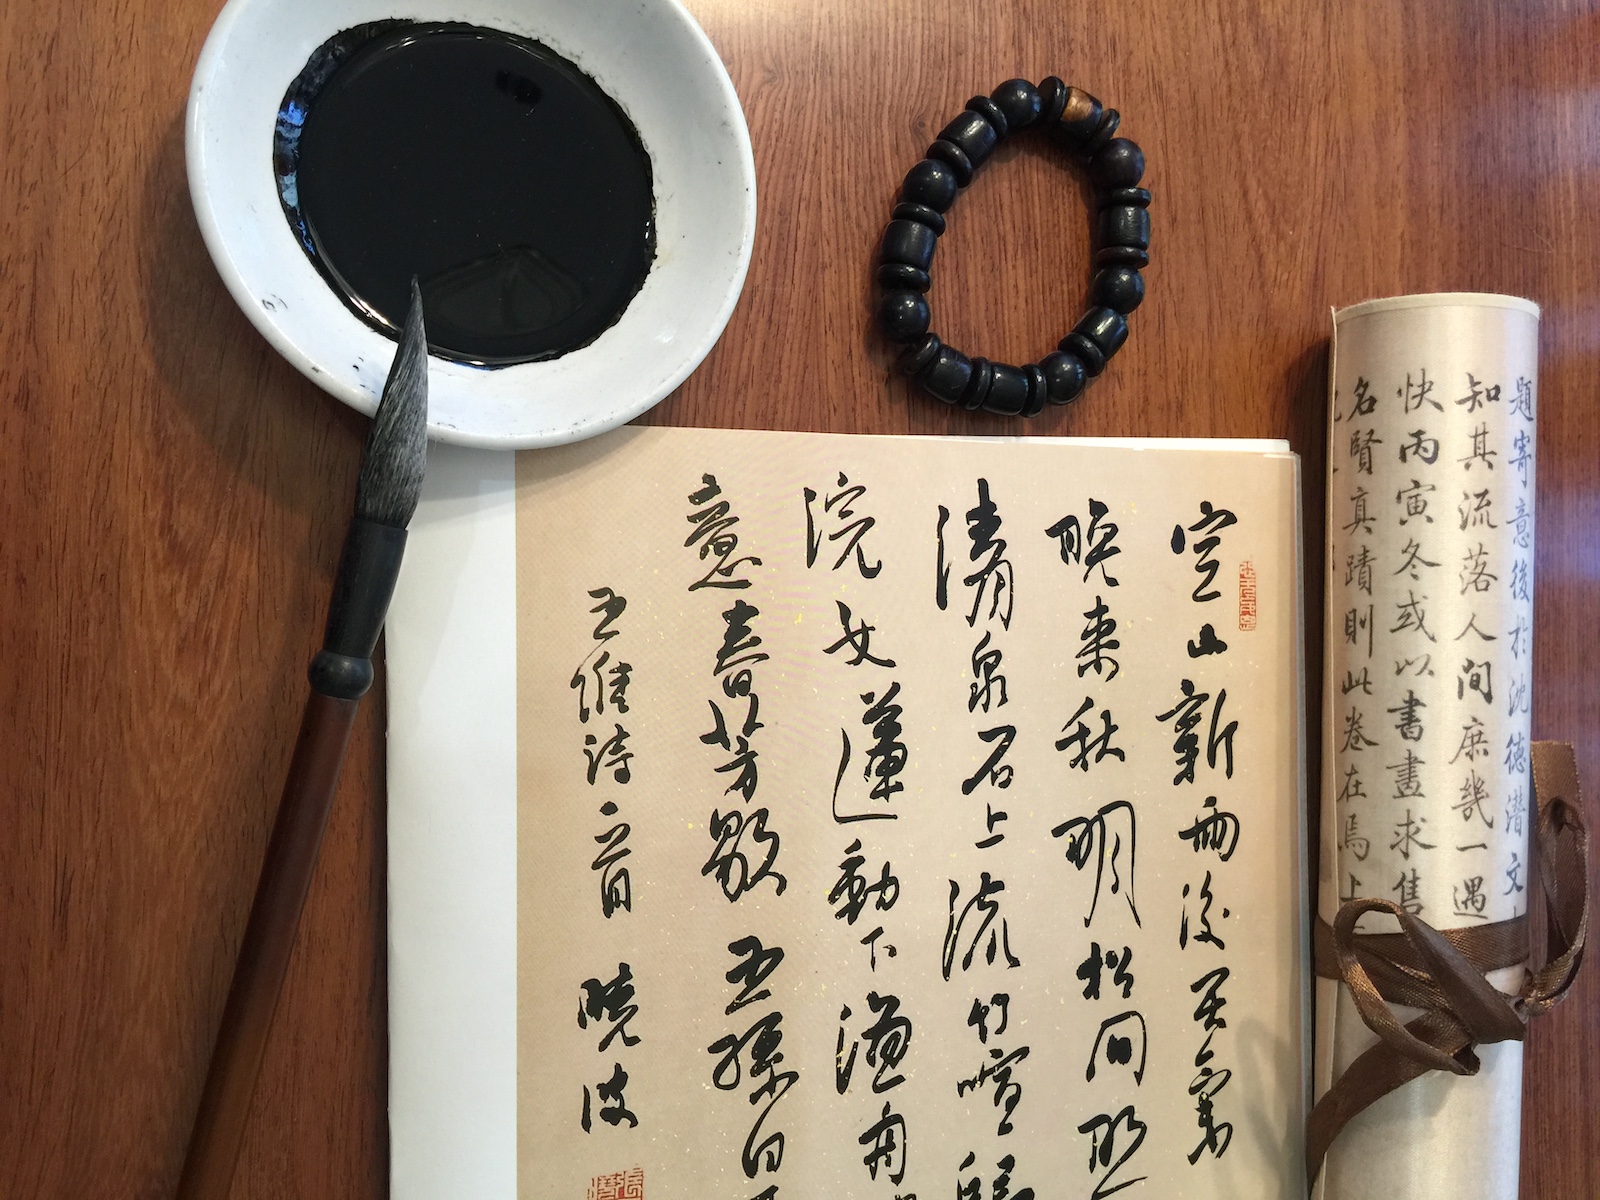 空山新雨後天氣
晚來秋明松間照
清泉石上流竹喧歸
浣女蓮動下漁舟
意春芳歇王孫自
王維詩一首 曉波
題寄意後於沈德潜文
知其流落人間庶幾一遇
快丙寅冬或以書畫求售
名賢真蹟則此卷在焉上